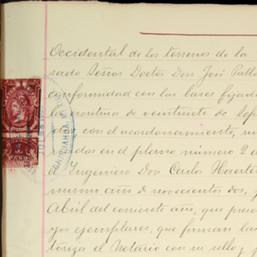 Occidental de los terrenos de la
sado Señor Doctor Don José Pabl
conformidad con las bases fijada
la escritura de veintiuno de Sep
con el acordonamiento, su
en el plano número 2 a
El Ingeniero Don Carlos
mismo año de novecientos dos, y
Abril del corriente año, que pre
yos ejemplares, que firman las
toriza el Notario con su sello y